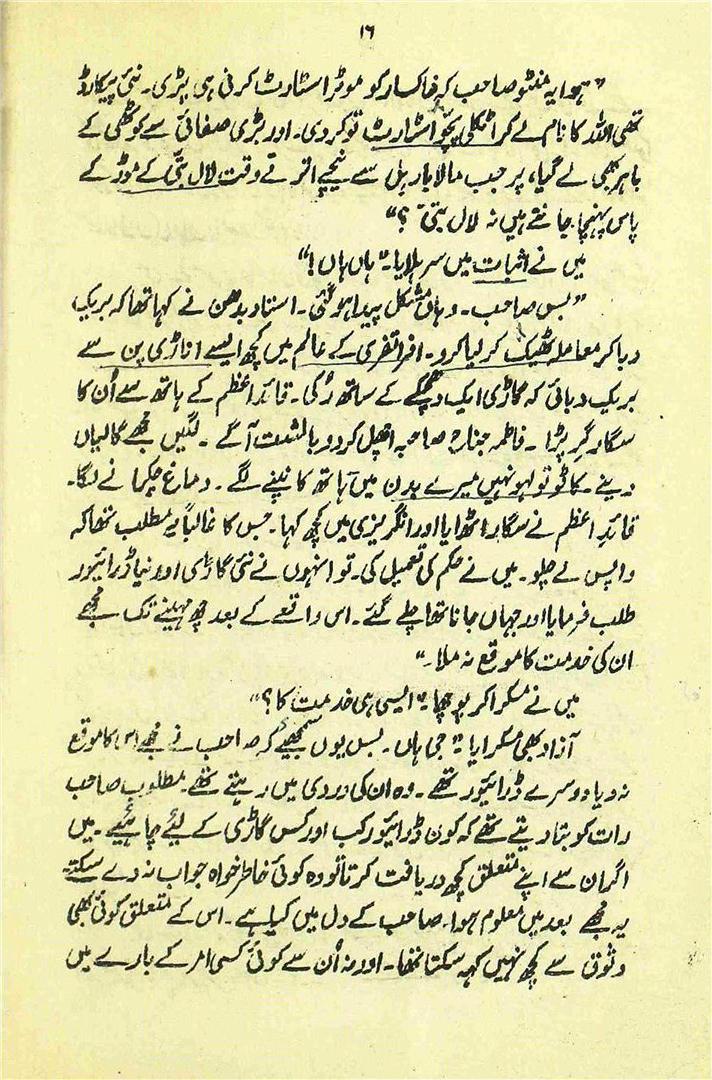 ۱۶
"ہوا یہ منٹو صاحب کہ خاکسار کو موٹر اسٹارٹ کرنی ہی پڑی۔ نئی پیکارڈ
تھی اللہ کا نام لے کر اٹکل پچو اسٹارٹ تو کر دی۔ اور بڑی صفائی سے کوٹھی کے
باہر بھی لے گیا، پر جب مالابار ہل سے نیچے اترتے وقت لال بتی کے موڑ کے
پاس پہنچا جانتے ہیں نہ لال بتی؟"
میں نے اثبات میں سر ہلایا۔ "ہاں ہاں!"
"بس صاحب۔ وہاں مشکل پیدا ہو گئی۔ استاد بدھن نے کہا تھا کہ بریک
دبا کر معاملہ ٹھیک کر لیا کرو۔ افراتفری کے عالم میں کچھ ایسے اناڑی پن سے
بریک دبائی کہ گاڑی ایک دھچکے کے ساتھ رُکی۔ قائدِ اعظم کے ہاتھ سے اُن کا
سگار گر پڑا۔ فاطمہ جناح صاحبہ اچھل کر دو بالشت آگے۔ لگیں مجھے گالیاں
دینے۔ کاٹو تو لہو نہیں میرے بدن میں ہاتھ کانپنے لگے۔ دماغ چکرانے لگا۔
قائدِ اعظم نے سگار اٹھایا اور انگریزی میں کچھ کہا۔ جس کا غالباً یہ مطلب تھا کہ
واپس لے چلو۔ میں نے حکم کی تعمیل کی۔ تو انہوں نے نئی گاڑی اور نیا ڈرائیور
طلب فرمایا اور جہاں جانا تھا چلے گئے۔ اس واقعے کے بعد چھ مہینے تک مجھے
ان کی خدمت کا موقع نہ ملا۔"
میں نے مسکرا کر پوچھا۔ "ایسی ہی خدمت کا؟"
آزاد بھی مسکرایا۔ "جی ہاں۔ بس یوں سمجھیے کہ صاحب نے مجھے اس کا موقع
نہ دیا دوسرے ڈرائیور تھے۔ وہ ان کی وردی میں رہتے تھے۔ مطلوب صاحب
رات کو بتا دیتے تھے کہ کون ڈرائیور کب اور کس گاڑی کے لئے چاہئیے۔ میں
اگر ان سے اپنے متعلق کچھ دریافت کرتا تو وہ کوئی خاطر خواہ جواب نہ دے سکتے
یہ مجھے بعد میں معلوم ہوا۔ صاحب کے دل میں کیا ہے۔ اس کے متعلق کوئی بھی
وثوق سے کچھ نہیں کہہ سکتا تھا۔ اور نہ اُن سے کوئی کسی امر کے بارے میں